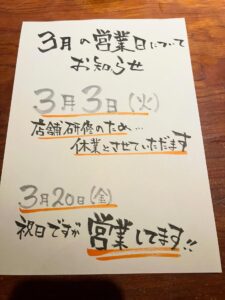 3月の営業日について
お知らせ
3月3日(火)
店舗研修のため…
休業とさせていただきます
3月20日(金)
祝日ですが営業してます!!